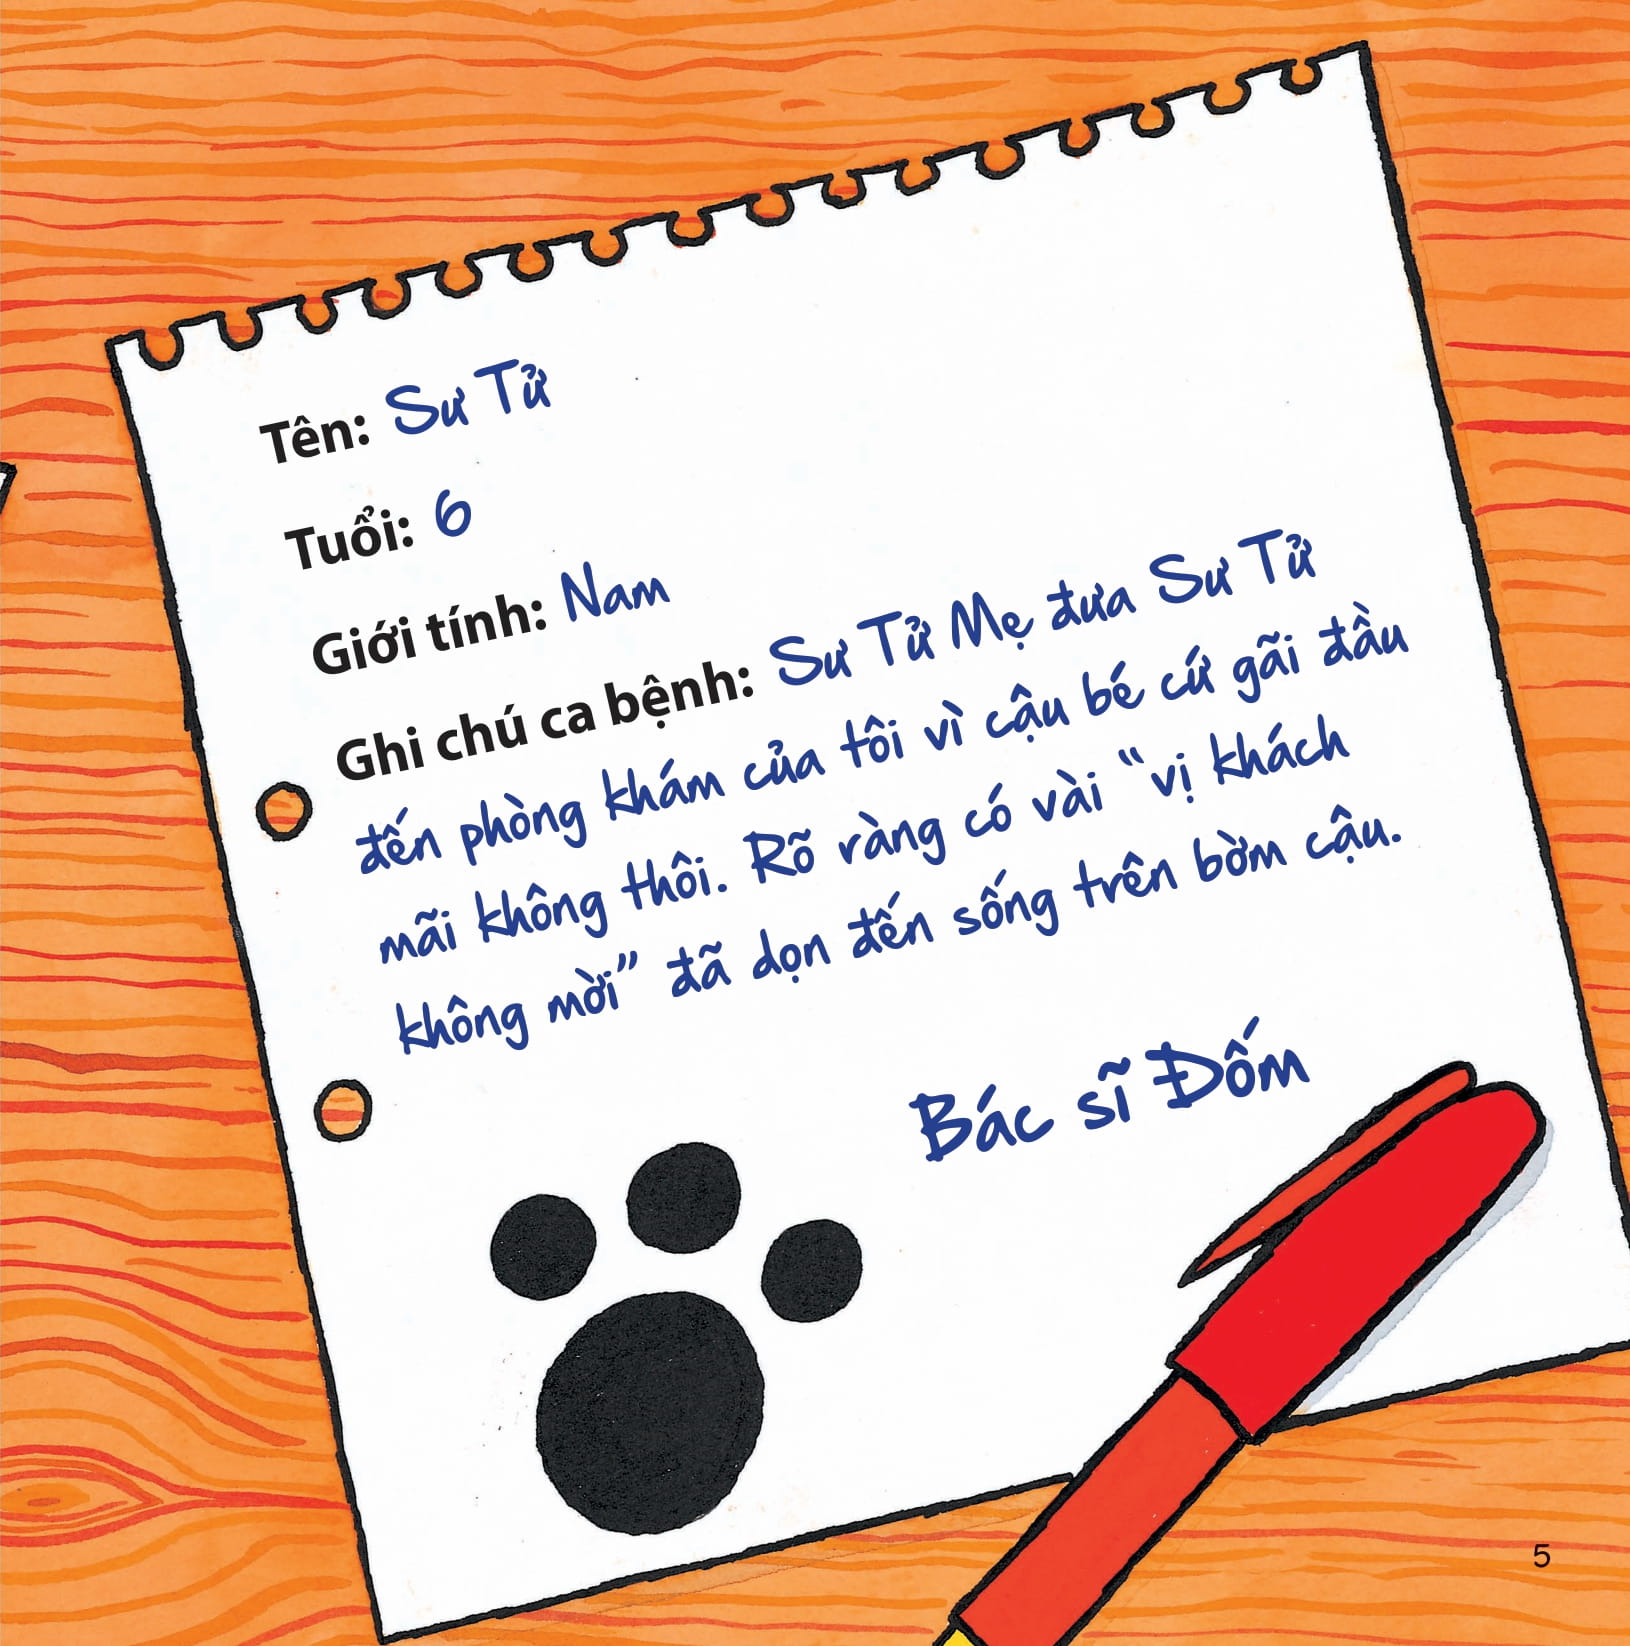 Tên: Sư Tử
Tuổi: 6
Giới tính: Nam
Ghi chú ca bệnh: Sư Tử Mẹ đưa Sư Tử
đến phòng khám của tôi vì cậu bé cứ gãi đầu
mãi không thôi. Rõ ràng có vài “vị khách
không mời” đã dọn đến sống trên bờm cậu.
Bác sĩ Đốm
5